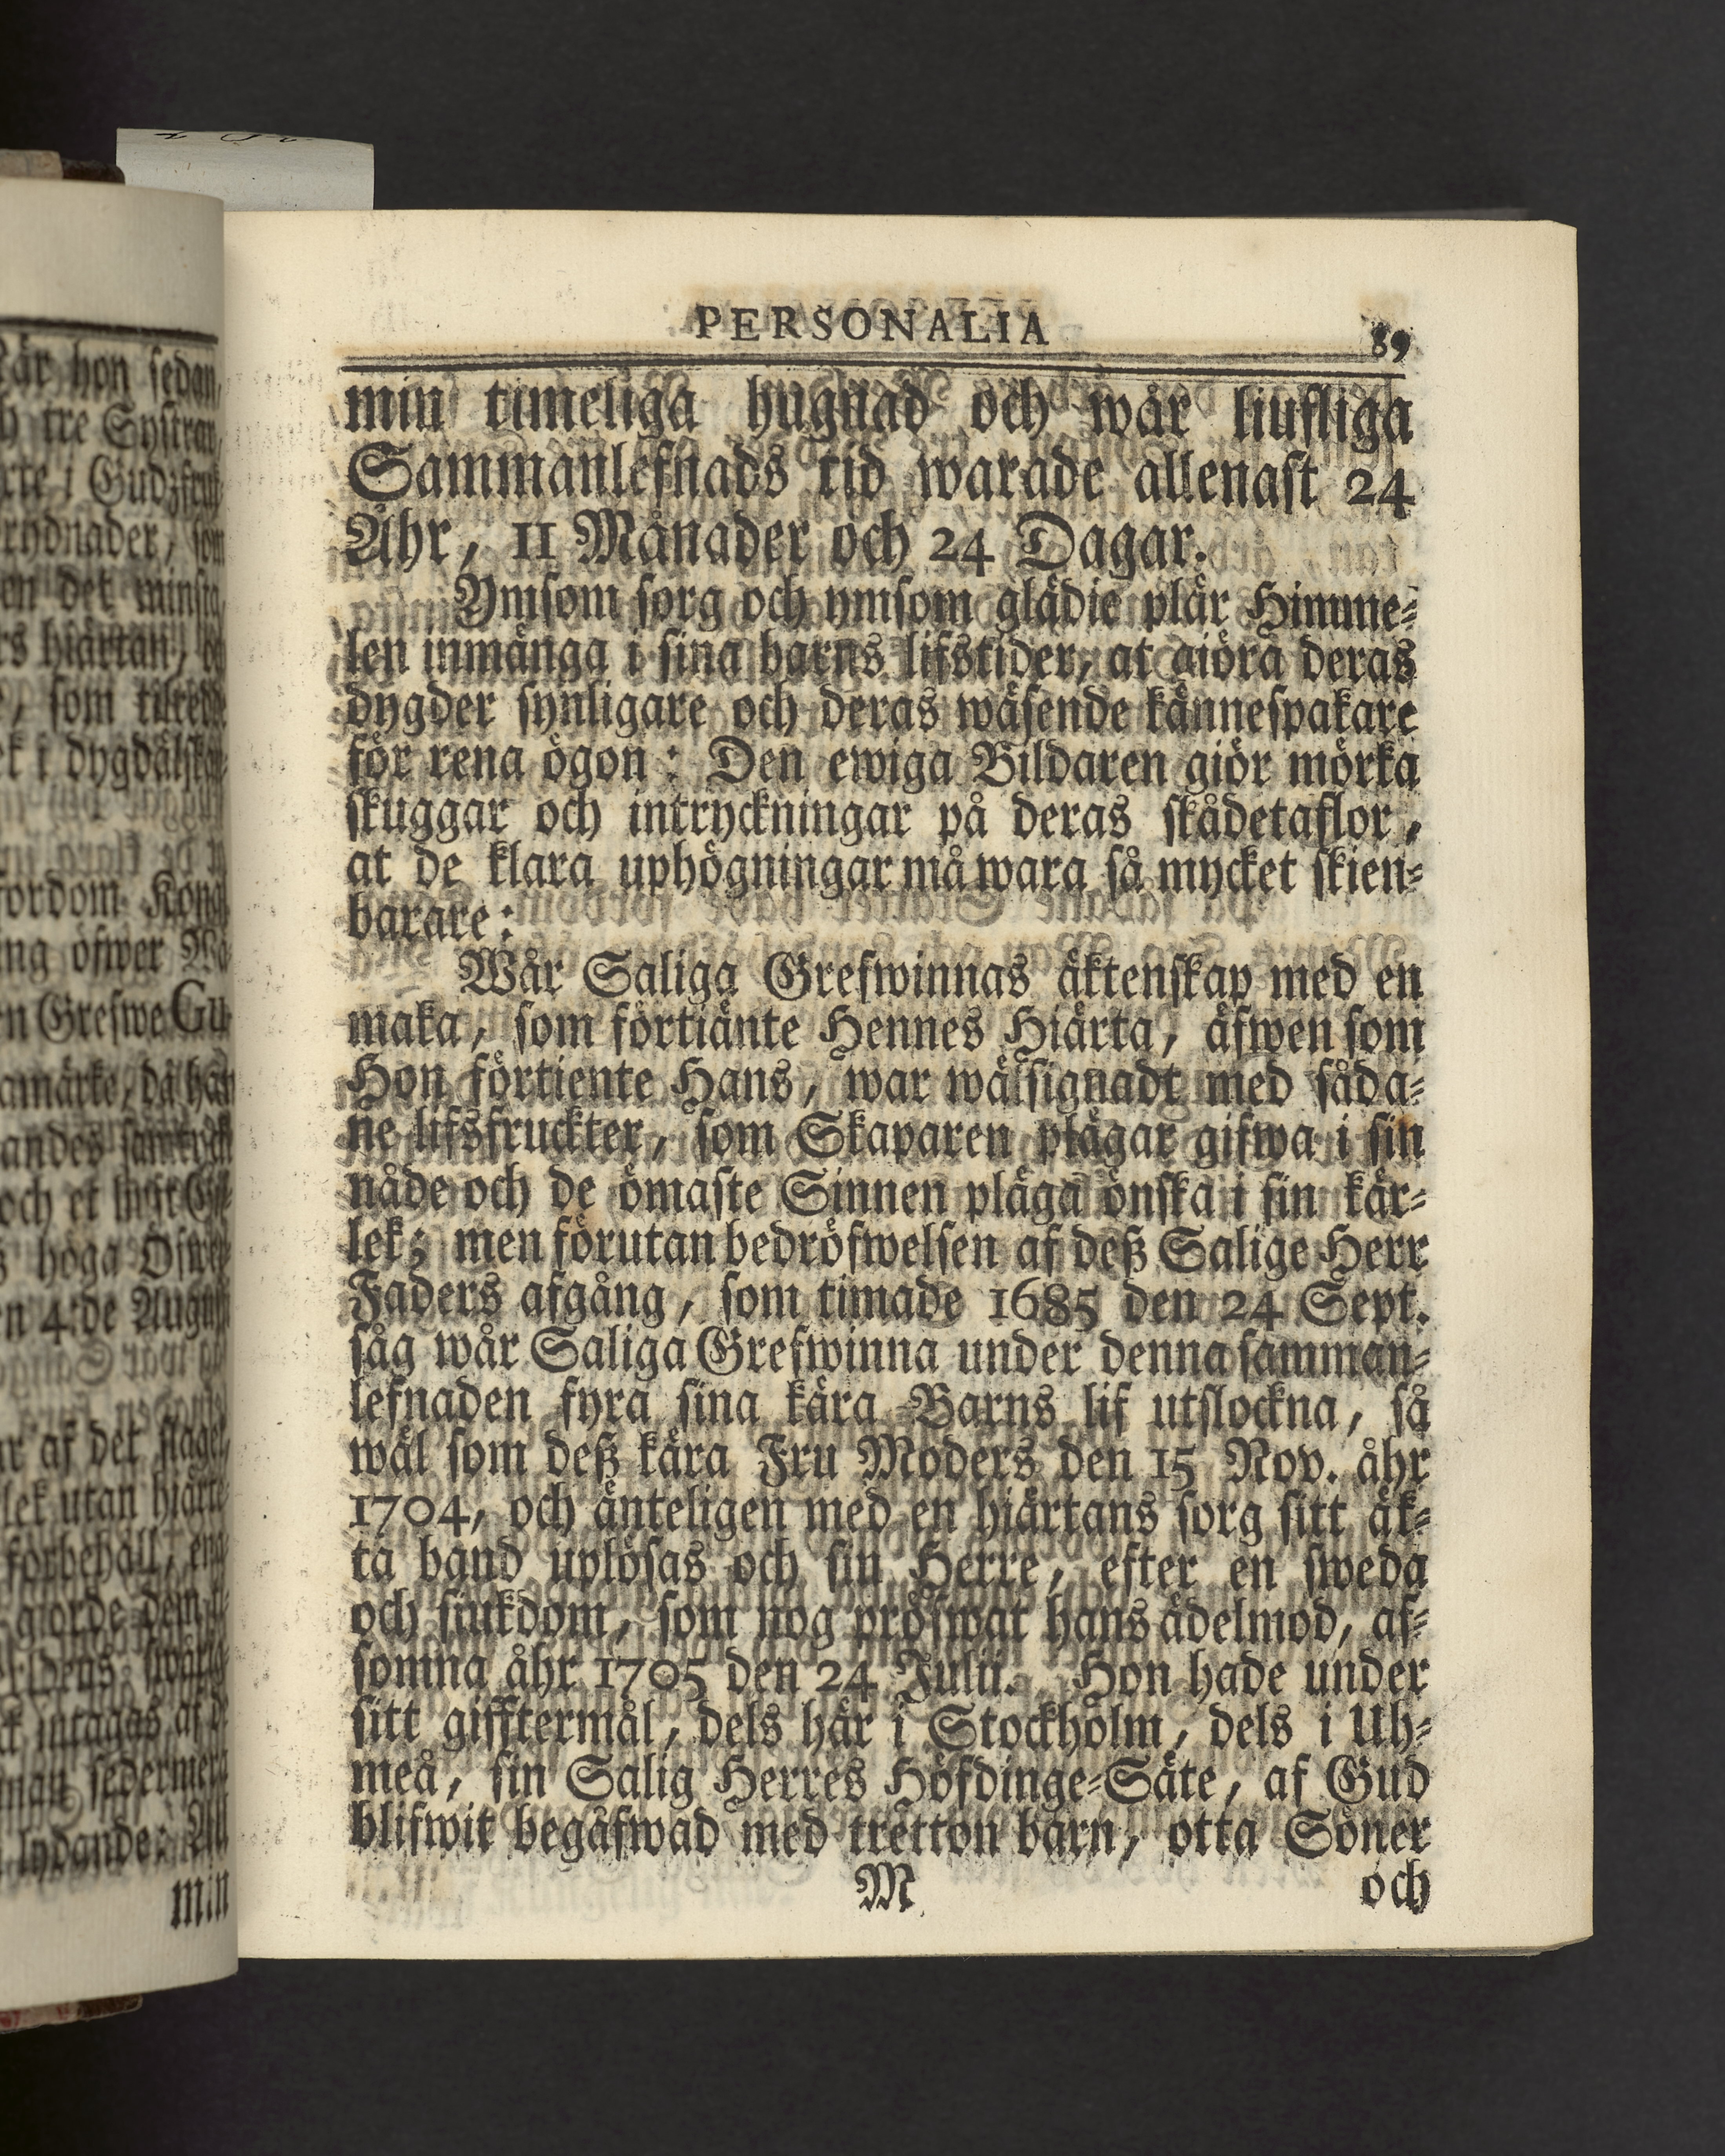 PERSONALIA 89
min timeliga hugnad och wår liufliga
Sammanlefnads tid warade allenast 24
Åhr, 11 Månader och 24 Dagar.
Ymsom sorg och ymsom glädie plär Himme-
len inmänga i sina barns lifstider, at giöra deras
dygder synligare och deras wäsende kännespakare
för rena ögon: Den ewiga Bildaren giör mörka
skuggar och intryckningar på deras skådetaflor,
at de klara uphögningar må wara så mycket skien-
barare:
Wår Saliga Grefwinnas äktenskap med en
maka, som förtiänte Hennes Hiärta, äfwen som
Hon förtiente Hans, war wälsignadt med såda-
ne lifsfruckter, som Skaparen plägar gifwa i sin
nåde och de ömaste Sinnen pläga önska i sin kär-
lek; men förutan bedröfwelsen af deß Salige Herr
Faders afgång, som timade 1685 den 24 Sept.
såg wår Saliga Grefwinna under denna samman-
lefnaden fyra sina kära Barns lif utslockna, så
wäl som deß kära Fru Moders den 15 Nov. åhr
1704, och änteligen med en hiärtans sorg sitt äk-
ta band uplösas och sin Herre, efter en sweda
och siukdom, som nog pröfwat hans ädelmod, af-
somna åhr 1705 den 24 Julii. Hon hade under
sitt gifftermål, dels här i Stockholm, dels i Uh-
meå, sin Salig Herres Höfdinge-Säte, af Gud
blifwit begåfwad med tretton barn, otta Söner
M och
är hon sedan
tre Systrar
Gudzfruk
som
en det minsta
rs hiärtan,
som
i dygdälskan
fordom Kongl
ing öfwer
Grefwe Gu-
märke, då han
andes samtyck
och et
höga Öfwer
4:de August
af det slaget,
lek utan hiärte
förbehåll, en
giorde dem
intagas af
man sedermera
lydande: All
min